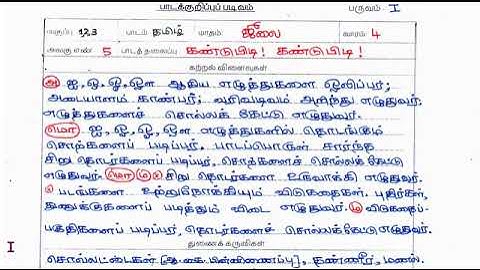 பாடக்குறிப்புப் படிவம் பருவம் I
வகுப்பு 1,2,3 பாடம் தமிழ் மாதம் ஜீலை வாரம் 4
அலகு எண் 5 பாடத் தலைப்பு கண்டுபிடி! கண்டுபிடி!
கற்றல் விளைவுகள்
அ ஐ, ஒ, ஓ, ஔ ஆகிய எழுத்துகளை ஒலிப்பர்;
அடையாளம் காண்பர்; வரிவடிவம் அறிந்து எழுதுவர்;
எழுத்துகளைச் சொல்லக் கேட்டு எழுதுவர்.
மொ ஐ, ஒ, ஓ, ஔ எழுத்துகளில் தொடங்கும்
சொற்களைப் படிப்பர். பாடப்பொருள் சார்ந்த
சிறு தொடர்களைப் படிப்பர், சொற்களைச் சொல்லக் கேட்டு
எழுதுவர். சிறு தொடர்களை உருவாக்கி எழுதுவர்.
படங்களை உற்றுநோக்கியும் விடுகதைகள், புதிர்கள்,
துணுக்குகளைப் படித்தும் விடை எழுதுவர். விடுகதைப்-
பகுதிகளைப் படிப்பர், தொடர்களைச் சொல்லக்கேட்டு எழுதுவர்.
துணைக் கருவிகள்
I சொல்லட்டைகள் [ஆ.கை பின்னிணைப்பு], தண்ணீர், மணல்